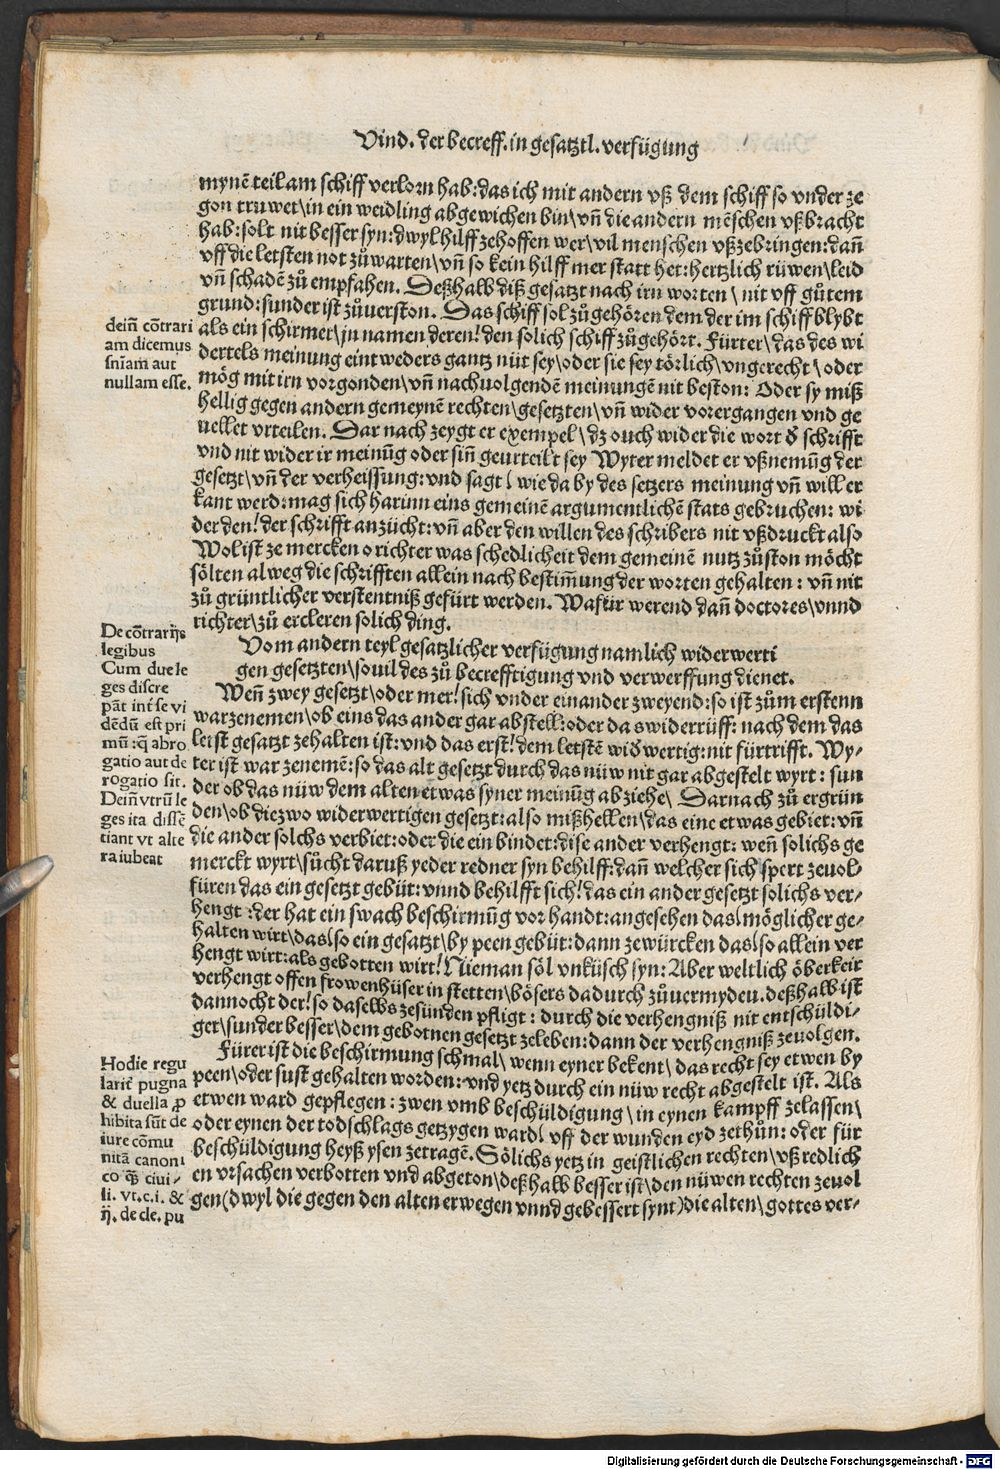 Vind. der becreff. in gesatztl. verfügung
mynē teil am schiff verlorn hab: das ich mit andern vß dem schiff so vnder ze
gon truwet\ in ein weidling abgewichen bin\ vn̄ die andern mēschen vßbracht
hab: solt nit besser syn: dwyl hilff zehoffen wer\ vil menschen vßzebringen: dan̄
vff die letsten not zů warten\ vn̄ so kein hilff mer statt het: hertzlich rüwen\ leid
vn̄ schadē zů empfahen. Deßhalb diß gesatzt nach irn worten \ nit vff gůtem
grund: sunder ist zůuerston. Das schiff sol zůgehören dem der im schiff blybt
als ein schirmer\ jn namen deren! den solich schiff zůgehört. Fürter\ das des wi
dertels meinung eintweders gantz nüt sey\ oder sie sey törlich\ vngerecht \ oder
mög mit irn vorgonden\ vn̄ nachuolgendē meinungē nit beston: Oder sy miß
hellig gegen andern gemeynē rechten\ gesetzten\ vn̄ wider vorergangen vnd ge
uellet vrteilen. Dar nach zeygt er exempel \ dz ouch wider die wort d̄ schrifft
vnd nit wider ir meinūg oder sin̄ geurteilt sey Wyter meldet er vßnemūg der
gesetzt\ vn̄ der verheissung: vnd sagt \ wie da by des setzers meinung vn̄ will er
kant werd: mag sich harinn eins gemeinē argumentlichē stats gebruchen: wi
der den! der schrifft anzücht: vn̄ aber den willen des schribers nit vßdruckt also
Wol ist ze mercken o richter was schedlicheit dem gemeinē nutz zůston möcht
sölten alweg die schrifften allein nach bestim̄ung der worten gehalten : vn̄ nit
zů grüntlicher verstentniß gefürt werden. Wafür werend dan̄ doctores\ vnnd
richter\ zů ercleren solich ding.
Vom andern teyl gesatzlicher verfügung namlich widerwerti
gen gesetzten\ souil des zů becrefftigung vnd verwerffung dienet.
Wen̄ zwey gesetzt\ oder mer! sich vnder einander zweyend: so ist zům erstenn
warzenemen\ ob eins das ander gar abstell: oder da s widerrüff: nach dem das
letst gesatzt zehalten ist: vnd das erst! dem letstē wid̄wertig: nit fürtrifft. Wy-
ter ist war zenemē: so das alt gesetzt durch das nüw nit gar abgestelt wyrt : sun
der ob das nüw dem alten etwas syner meinūg abziehe\ Darnach zů ergrün
den\ ob die zwo widerwertigen gesetzt: also mißhellen\ das eine etwas gebiet: vn̄
die ander solchs verbiet: oder die ein bindet: dise ander verhengt: wen̄ solichs ge
merckt wyrt\ sůcht daruß yeder redner syn behilff: dan̄ welcher sich spert zeuol-
füren das ein gesetzt gebüt: vnnd behilfft sich! das ein ander gesetzt solichs ver-
hengt : der hat ein swach beschirmūg vor handt: angesehen das\ möglicher ge-
halten wirt\ das\ so ein gesatzt\ by peen gebüt: dann zewürcken das\ so allein ver
hengt wirt: als gebotten wirt! Nieman söl vnküsch syn: Aber weltlich öberkeir
verhengt offen frowenhüser in stetten\ bösers dadurch zůuermyden. deßhalb ist
dannocht der! so daselbs zesünden pfligt : durch die verhengniß nit entschüldi-
ger\ sunder besser\ dem gebotnen gesetzt zeleben: dann der verhengniß zeuolgen.
Fürer ist die beschirmung schmal\ wenn eyner bekent\ das recht sey etwen by
peen\ oder sust gehalten worden: vnd yetz durch ein nüw recht abgestelt ist. Als
etwen ward gepflegen : zwen vmb beschüldigung \ in eynen kampff zelassen\
oder eynen der todschlags getzygen ward\ vff der wunden eyd zethůn: oder für
beschüldigung heyß ysen zetragē. Sölichs yetz in geistlichen rechten\ vß redlich
en vrsachen verbotten vnd abgeton\ deßhalb besser ist\ den nüwen rechten zeuol
gen (dwyl die gegen den alten erwegen vnnd gebessert synt) die alten\ gottes ver-
dein̄ cōtrari
am dicemus
sniam̄ aut
nullam esse.
De cōtrarijs
legibus
Cum due le
ges discre
pāt int̄ se vi
dēdū est pri
mū : q̄ abro
gatio aut de
rogatio sit.
Dein̄ vtrū le
ges ita dissē
tiant vt alte
ra iubeat
Hodie regu
larit̄ pugna
& duella ꝓ
hibita sūt de
iure cōmu
nitā canoni
co q̄ȝ ciui-
li. vt. c. i. &
ij. de cle. pu
Digitalisierung gefördert durch die Deutsche Forschungsgemeinschaft - DFG